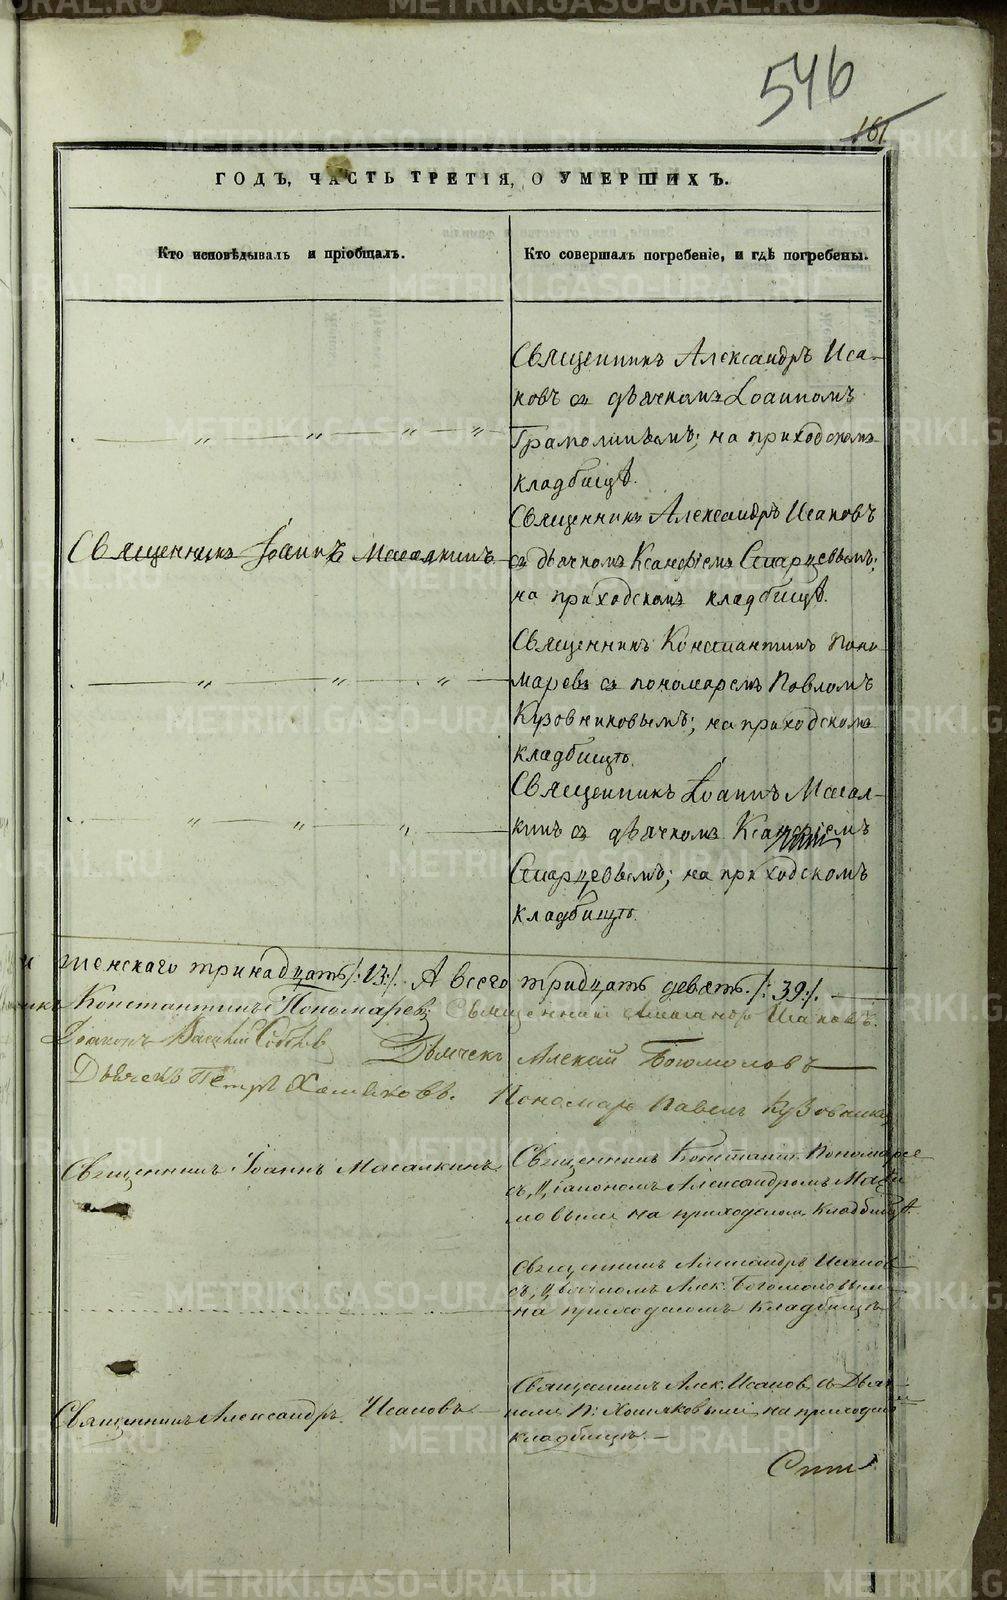 546
161
ГОДЪ, ЧАСТЬ ТРЕТІЯ, О УМЕРШИХЪ.
Кто исповѣдывалъ и пріобщалъ.
Кто совершалъ погребеніе, и гдѣ погребены.
Священникъ Александръ Иса-
ковъ съ дьячкомъ Іоанномъ
Грамолинымъ; на приходскомъ
кладбищѣ.
Священникъ Іоаннъ Масалкинъ
Священникъ Александръ Исаковъ
съ дьячкомъ Ксанфіемъ Старцевымъ;
на приходскомъ кладбищѣ.
Священникъ Константинъ Поно-
маревъ съ пономаремъ Павломъ
Кузовниковымъ; на приходскомъ
кладбищѣ.
Священникъ Іоаннъ Масал-
кинъ съ дьячкомъ Ксанфіемъ
Старцевымъ; на приходскомъ
кладбищѣ.
женскаго тринадцать /:13:/. А всего тридцать девять. /:39:/.
Константинъ Пономаревъ Священникъ Александръ Исаковъ.
Діаконъ Василій Дьячекъ Алексѣй Богомоловъ
Дьячекъ Петръ Хомяковъ. Пономарь Павелъ Кузовник
Священникъ Іоаннъ Масалкинъ
Священникъ Констант. Пономаре
съ Діакономъ Александромъ
на приходскомъ кладбищѣ.
Священникъ Александръ Исаков
съ Дьячкомъ Алек. Богомоловым
на приходскомъ кладбищѣ
Священникъ Александръ Исаковъ
Священникъ Алек. Исаков съ Дьяч-
комъ П: Хомяковымъ на приходско
кладбищѣ.
METRIKI.GASO-URAL.RU